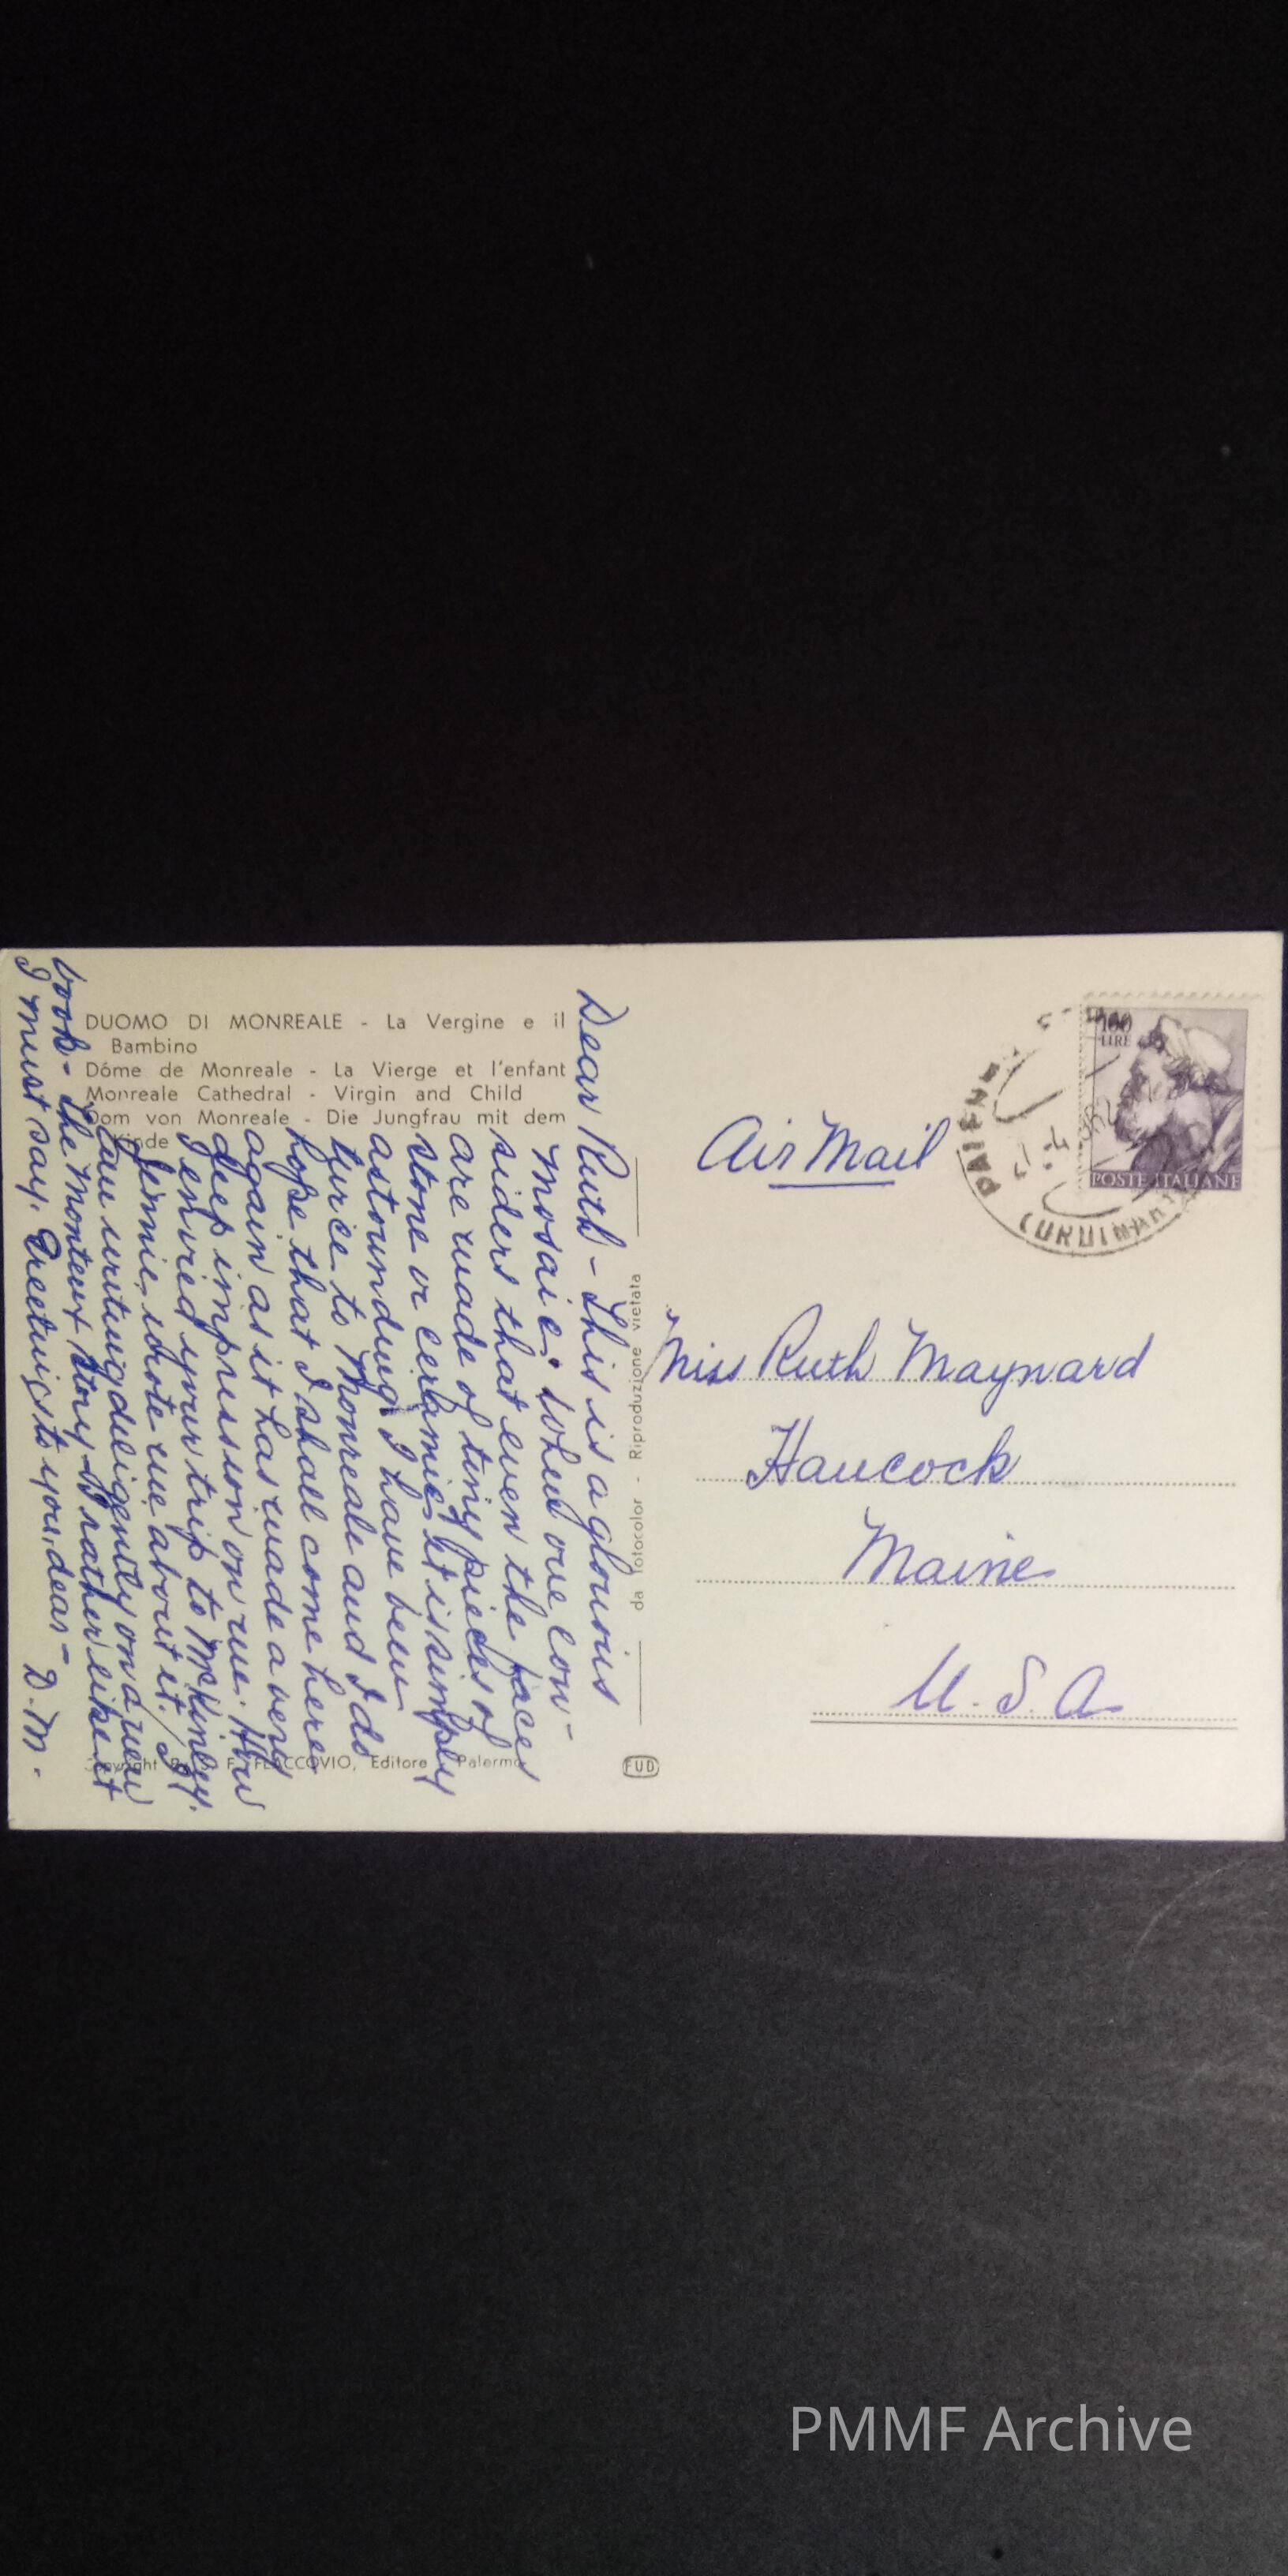 DUOMO DI MONREALE - La Vergine e il
Bambino
Dôme de Monreale - La Vierge et l'enfant
Monreale Cathedral - Virgin and Child
Dom von Monreale - Die Jungfrau mit dem
Kinde
Dear Ruth - This is a glorious
mosaic. When one con-
siders that even the faces
are made of tiny pieces of
stone or ceramics it is simply
astounding. I have been
twice to Monreale and I do
hope that I shall come here
again as it has made a very
deep impression on me. How
I envied your trip to McKinley.
Jimmie wrote me about it. I
am writing diligently on a new
book - The Monteux story & rather like it
I must say. Greetings to you, dear - D.M.
Copyright F. FLACCOVIO, Editore Palermo
da fotocolor - Riproduzione vietata
FUD
100
LIRE
POSTE ITALIANE
Air Mail
Miss Ruth Maynard
Hancock
Maine
U.S.A.
PMMF Archive